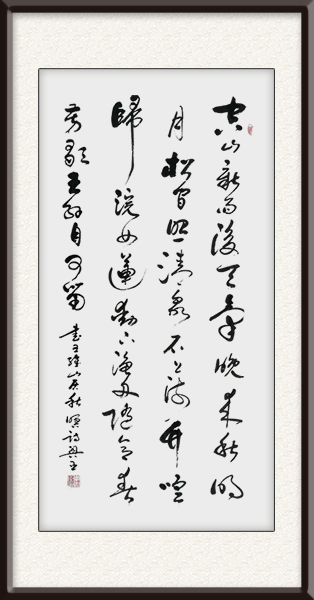 空山新雨後天氣晚來秋明
月松間照清泉石上流竹喧
歸浣女蓮動下漁舟隨意春
芳歇王孫自可留
書王維山居秋暝詩